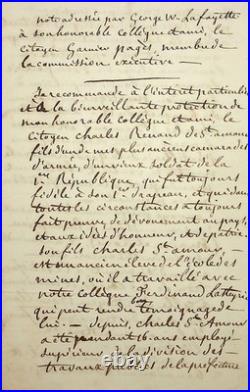 note adressée par George W. Lafayette
à son honorable collègue et ami, le
citoyen Garnier pagès, membre de
la commission exécutive —
Je recommande à l'intérêt particulier
et à la bienveillante protection de
mon honorable collègue et ami, le
citoyen Charles Renaud de St amour
fils d'un de mes plus anciens camarades
d'armée, d'un vieux soldat de la
1ère République, qui fut toujours
fidèle à son drapeau, et qui dans
toutes les circonstances a toujours
fait preuve de dévouement au pays,
et aux idées d'honneur, et de patrie.
son fils Charles St amour,
est ancien élève de l'école des
mines, où il a travaillé avec
notre collègue Ferdinand Lasteyrie
qui peut rendre témoignage de
lui. — depuis, Charles St Amour
a été pendant 16 ans employé
supérieur à la division des
travaux publics de la préfecture